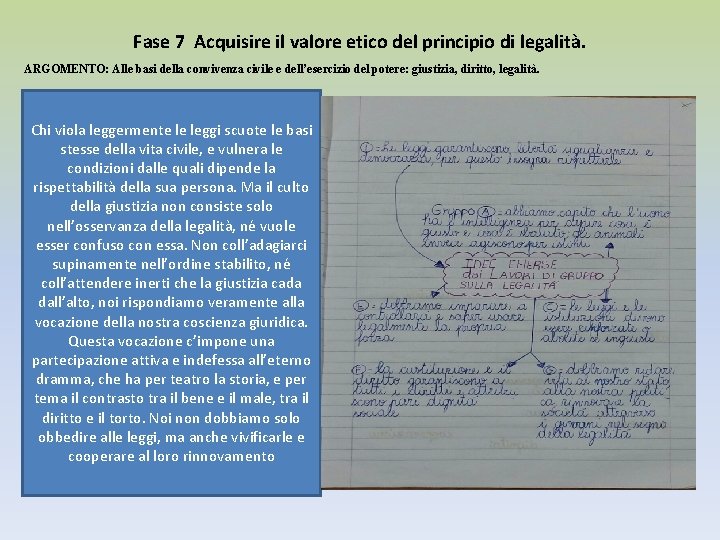 Fase 7 Acquisire il valore etico del principio di legalità.
ARGOMENTO: Alle basi della convivenza civile e dell'esercizio del potere: giustizia, diritto, legalità.
Chi viola leggermente le leggi scuote le basi
stesse della vita civile, e vulnera le
condizioni dalle quali dipende la
rispettabilità della sua persona. Ma il culto
della giustizia non consiste solo
nell'osservanza della legalità, né vuole
esser confuso con essa. Non coll'adagiarci
supinamente nell'ordine stabilito, né
coll'attendere inerti che la giustizia cada
dall'alto, noi rispondiamo veramente alla
vocazione della nostra coscienza giuridica.
Questa vocazione c'impone una
partecipazione attiva e indefessa all'eterno
dramma, che ha per teatro la storia, e per
tema il contrasto tra il bene e il male, tra il
diritto e il torto. Noi non dobbiamo solo
obbedire alle leggi, ma anche vivificarle e
cooperare al loro rinnovamento
le leggi garantiscono libertà uguaglianze e
democrazia, per questo bisogna rispettarle
Gruppo A = abbiamo capito che l'uomo
ha l'intelligenza per capire cosa è
giusto e cosa è sbagliato; gli animali
invece agiscono per istinto
IDEE EMERSE
dai LAVORI DI GRUPPO
SULLA LEGALITÀ
dobbiamo imparare a
controllare e saper usare
legalmente la propria
forza
C = le leggi e le
istituzioni devono
essere rinforzate o
abolite se ingiuste
la costituzione e il
diritto garantiscono a
tutti i diritti e attribui
scono pari dignità
sociale
dobbiamo ridare
al nostro stato
alla nostra politi
ca la
società attraverso
i giovani nel segno
della legalità